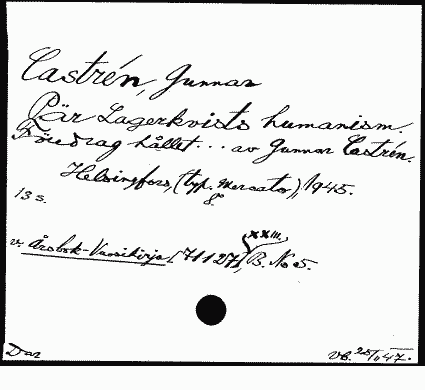 Castrén, Gunnar
Pär Lagerkvists humanism.
Föredrag hållet... av Gunnar Castrén.
Helsingfors, (typ. Mercator), 1945.
8°
13 s.
XXIII,
v. Årsbok-Vuosikirja [71127], B. No 5.
Dar